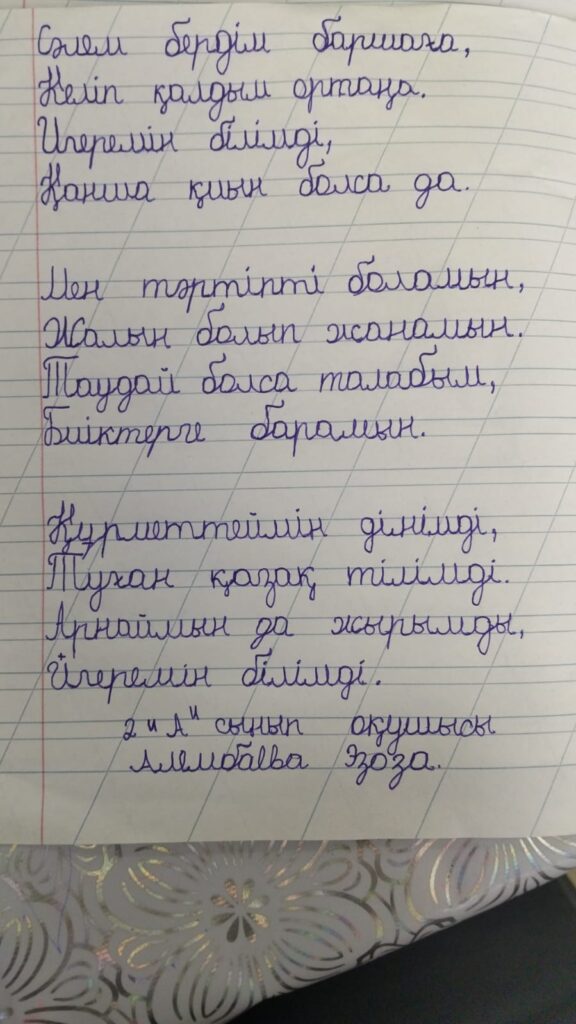 Сәлем бердім баршаға,
Келіп қалдым ортаңа.
Игеремін білімді,
Қанша қиын болса да.
Мен тәртіпті боламын,
Жалын болып жанамын.
Таудай болса талабым,
Биіктерге барамын.
Құрметтеймін дінімді,
Туған қазақ тілімді.
Арнаймын да жырымды,
Игеремін білімді.
2 "А" сынып оқушысы
Алембаева Эзоза.